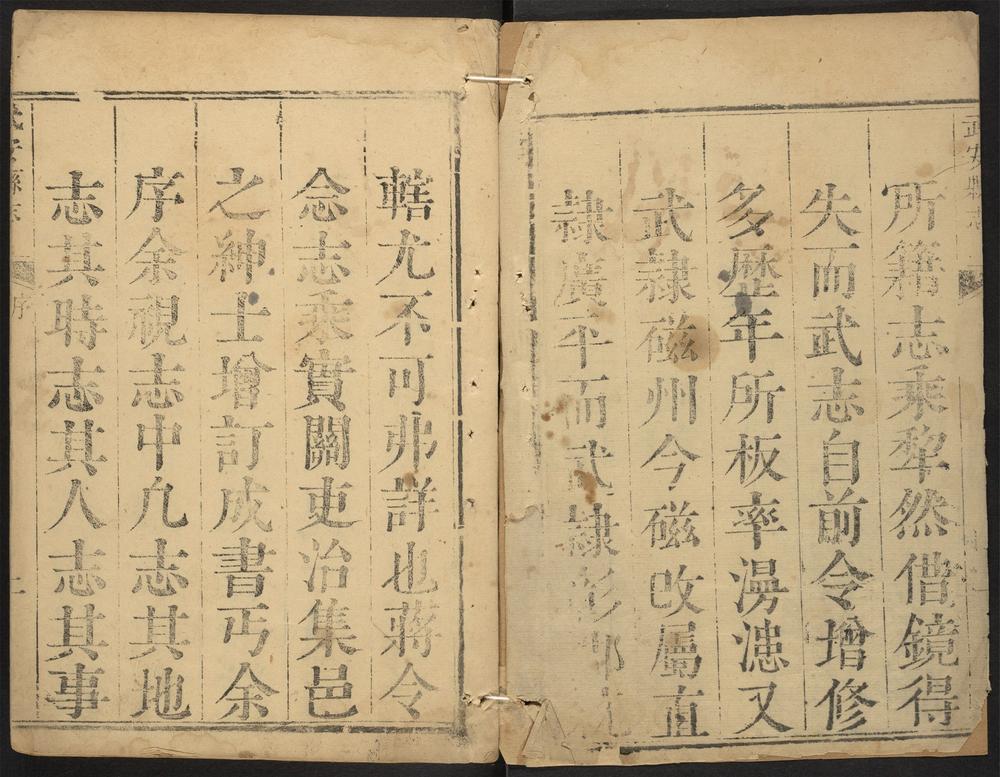 武安縣志
所籍志乘犂然借鏡得
失而武志自前令增修
多歷年所板率漫漶又
武隷磁州今磁改屬直
隷廣平而武隷彰
轄尤不可弗詳也蔣令
念志乘實關吏治集邑
之紳士增訂成書丐余
序余視志中凢志其地
志其時志其人志其事
武安縣志 序 二